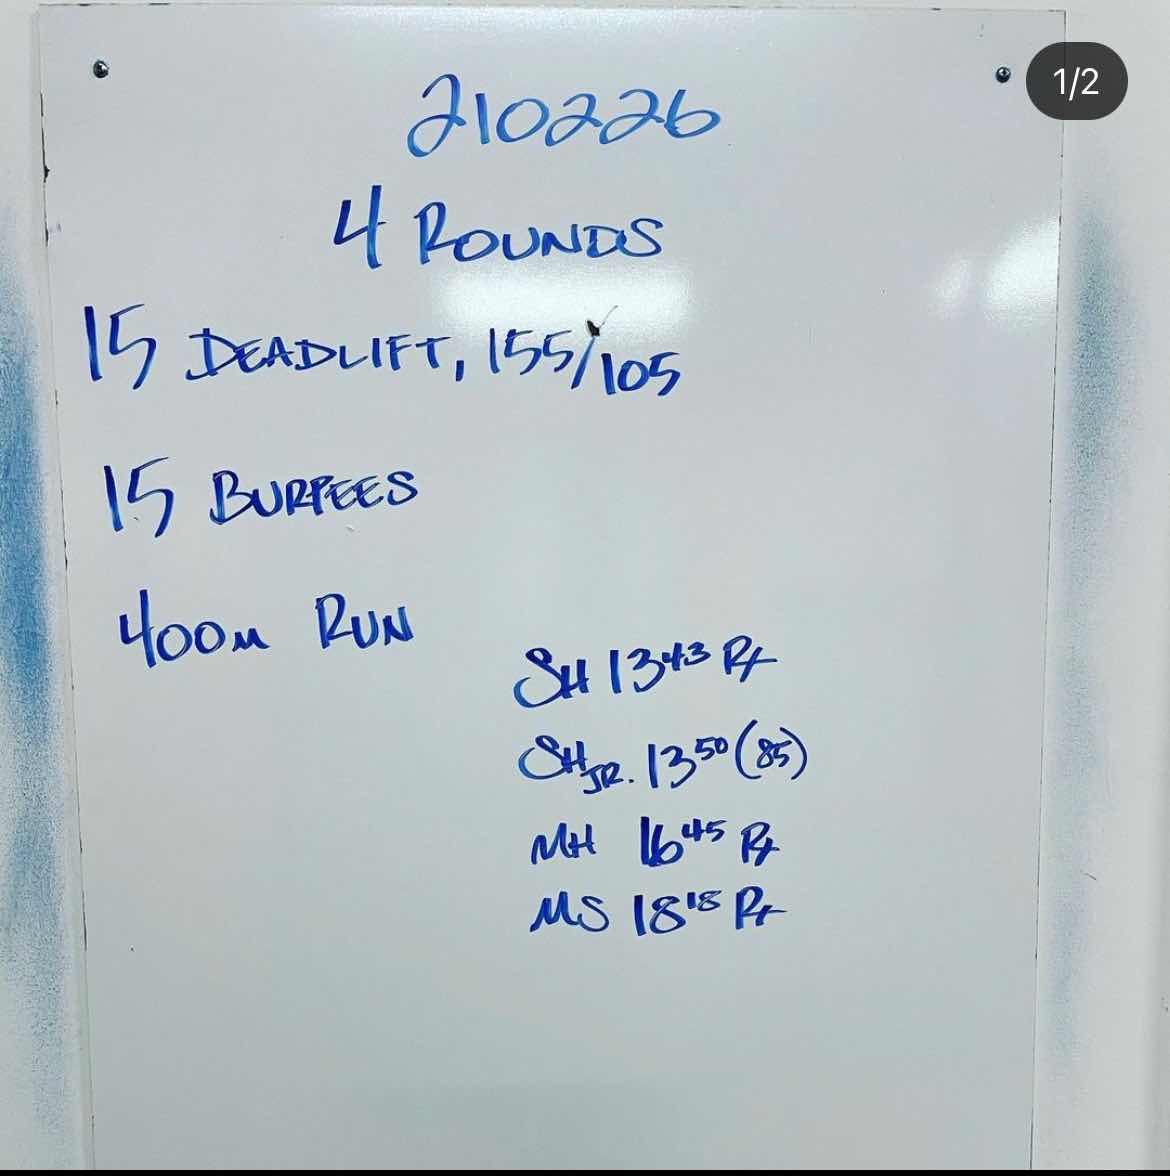 1/2
210226
4 ROUNDS
15 DEADLIFT, 155/105
15 BURPEES
400m RUN
SH 13 43 Rx
SH JR. 13 50 (85)
MH 16 45 Rx
MS 18 18 Rx